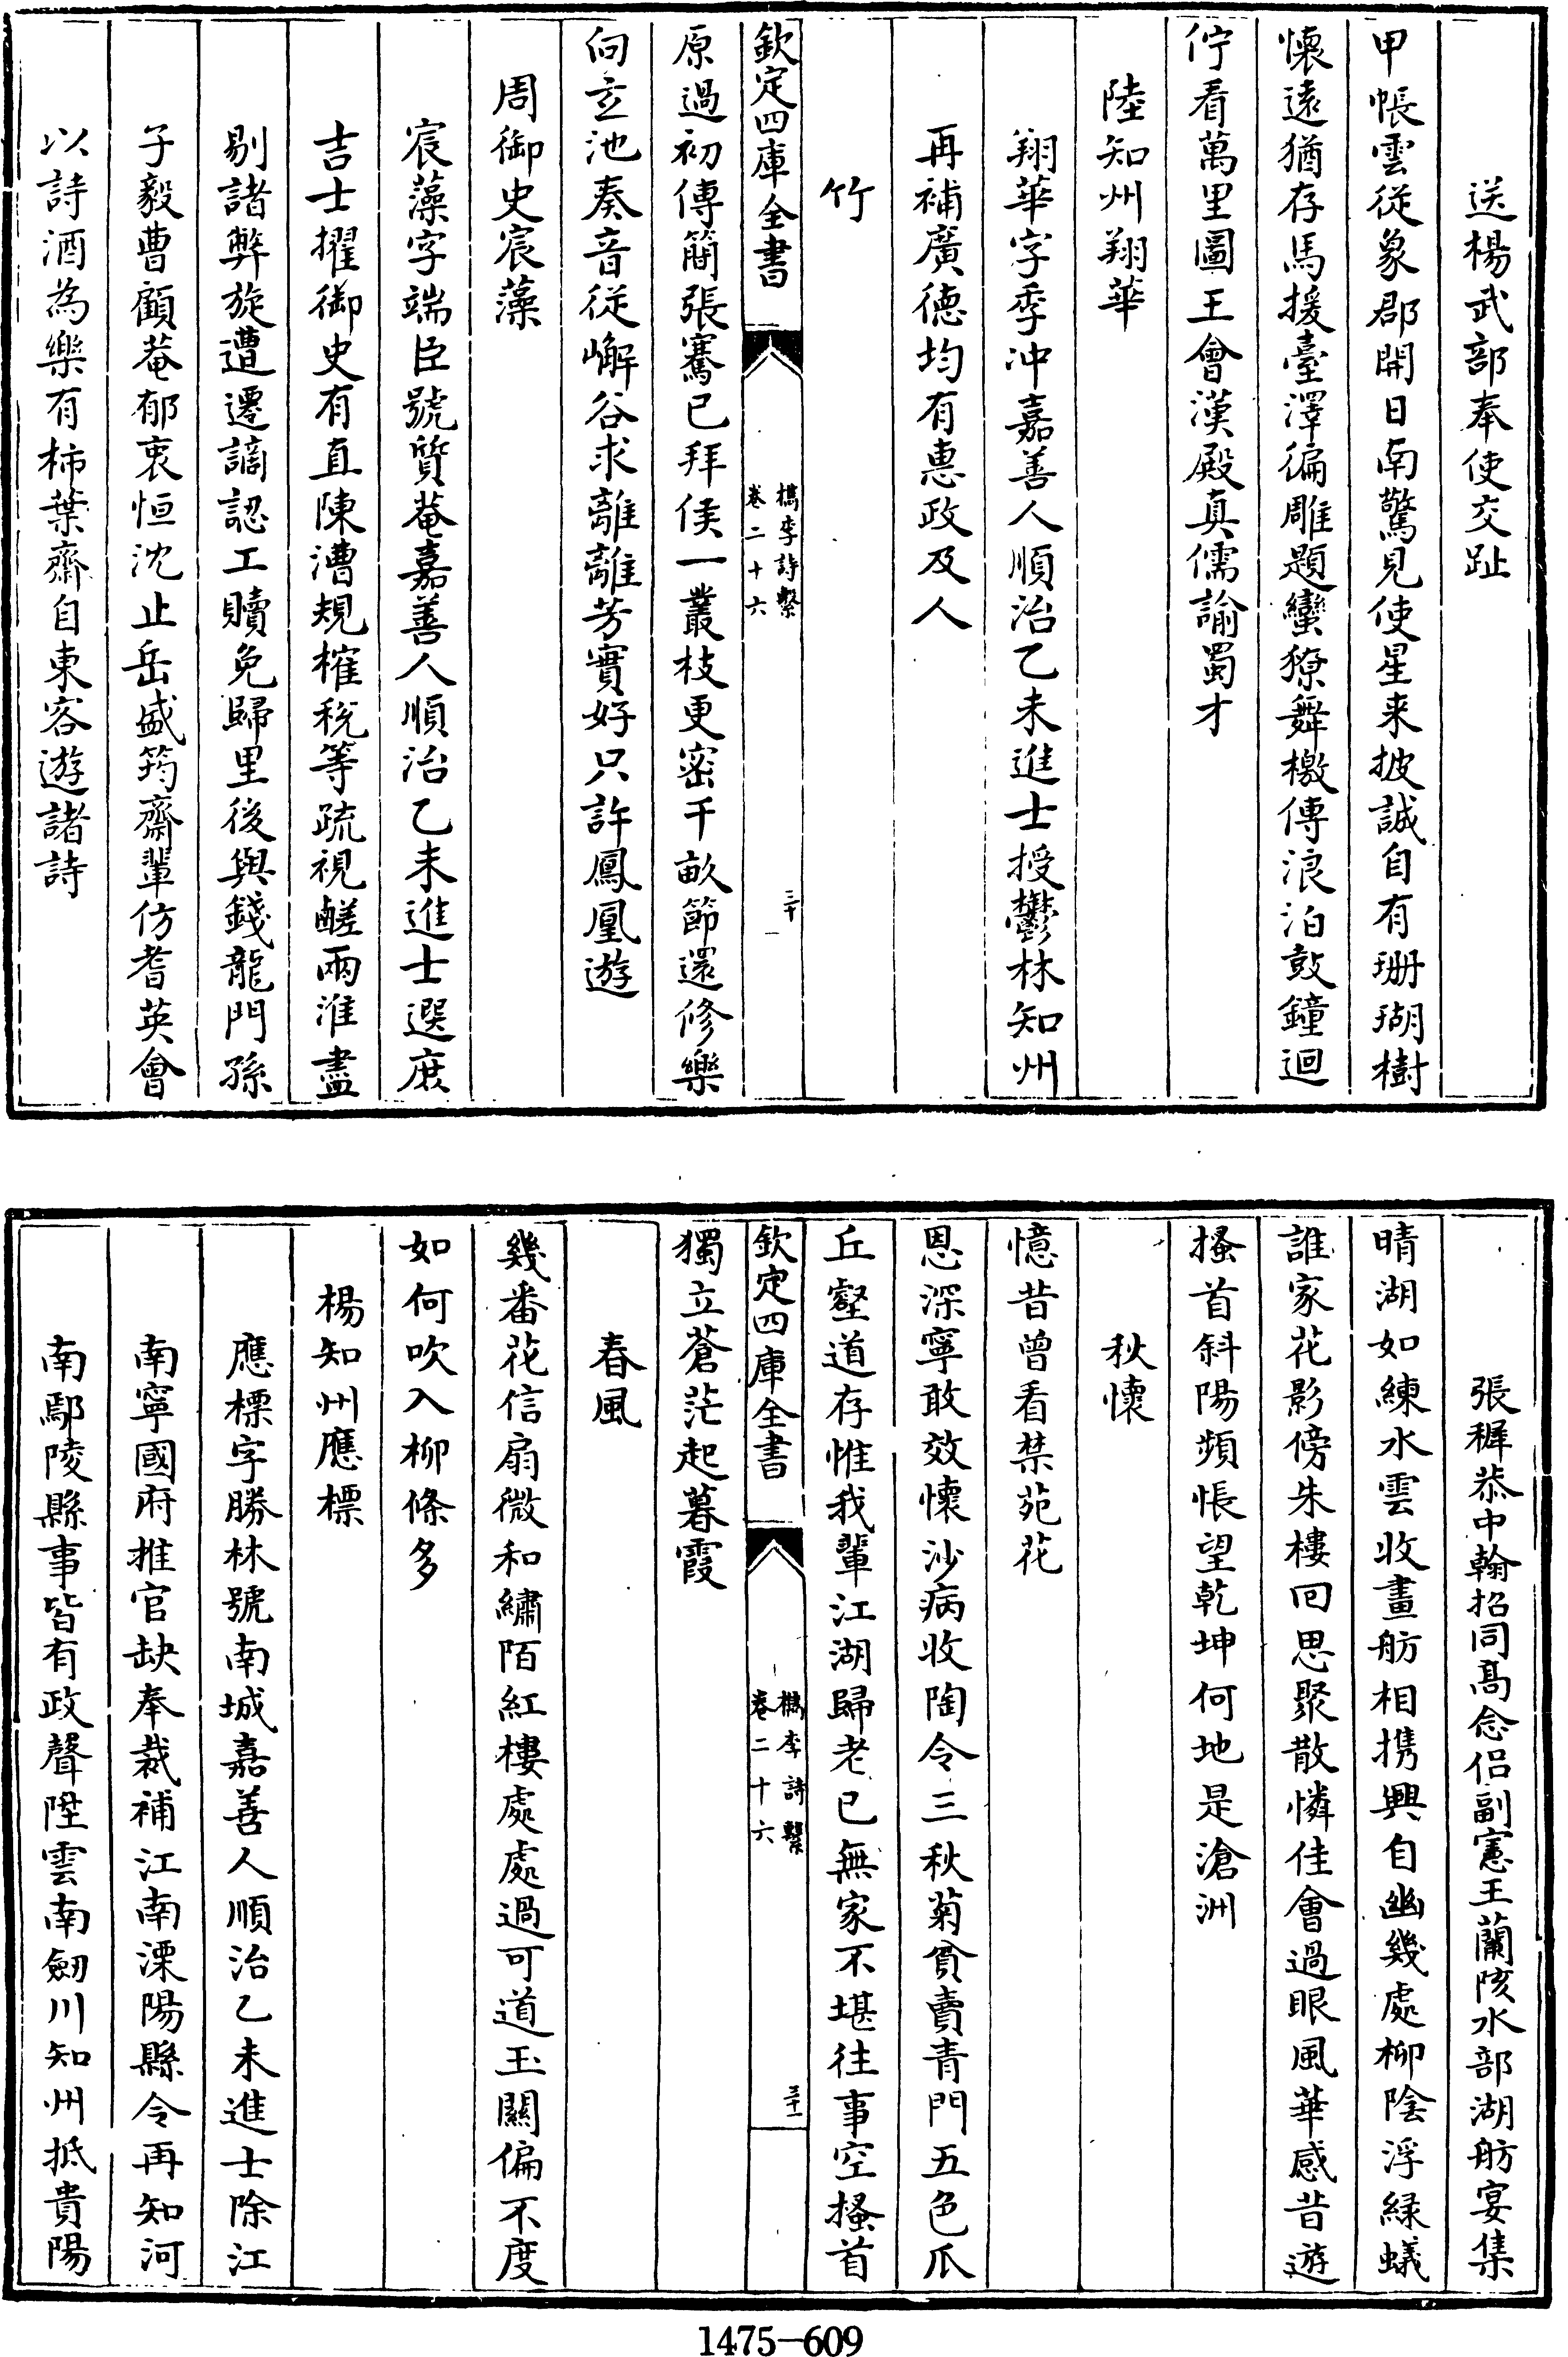 送楊武部奉使交趾
甲帳雲從象郡開日南驚見使星来披誠自有珊瑚樹
懷遠猶存馬援臺澤徧雕題蠻獠舞檄傳浪泊鼓鐘迴
佇看萬里圖王會漢殿真儒諭蜀才
陸知州翔華
翔華字季沖嘉善人順治乙未進士授鬱林知州
再補廣德均有惠政及人
竹
欽定四庫全書
檇李詩繫
卷二十六
三十
原過初傳簡張騫已拜侯一叢枝更密千畝節還修樂
向立池奏音從嶰谷求離離芳實好只許鳳凰遊
周御史宸藻
宸藻字端臣號質菴嘉善人順治乙未進士選庶
吉士擢御史有直陳漕規榷税等疏視鹺兩淮盡
剔諸弊旋遭遷謫認工贖免歸里後與錢龍門孫
子毅曹顧菴郁衷恒沈止岳盛筠齋輩仿耆英會
以詩酒為樂有柿葉齋自東客遊諸詩
張穉恭中翰招同高念侣副憲王蘭陔水部湖舫宴集
晴湖如練水雲收畫舫相携興自幽幾處柳陰浮緑蟻
誰家花影傍朱樓回思聚散憐佳會過眼風華感昔遊
搔首斜陽頻悵望乾坤何地是滄洲
秋懷
憶昔曾看禁苑花
恩深寧敢效懷沙病收陶令三秋菊貧賣青門五色瓜
丘壑道存惟我輩江湖歸老已無家不堪往事空搔首
欽定四庫全書
檇李詩繫
卷二十六
三十一
獨立蒼茫起暮霞
春風
幾番花信扇微和繡陌紅樓處處過可道玉關偏不度
如何吹入柳條多
楊知州應標
應標字勝林號南城嘉善人順治乙未進士除江
南寧國府推官缺奉裁補江南溧陽縣令再知河
南鄢陵縣事皆有政聲陞雲南劒川知州抵貴陽
1475-609